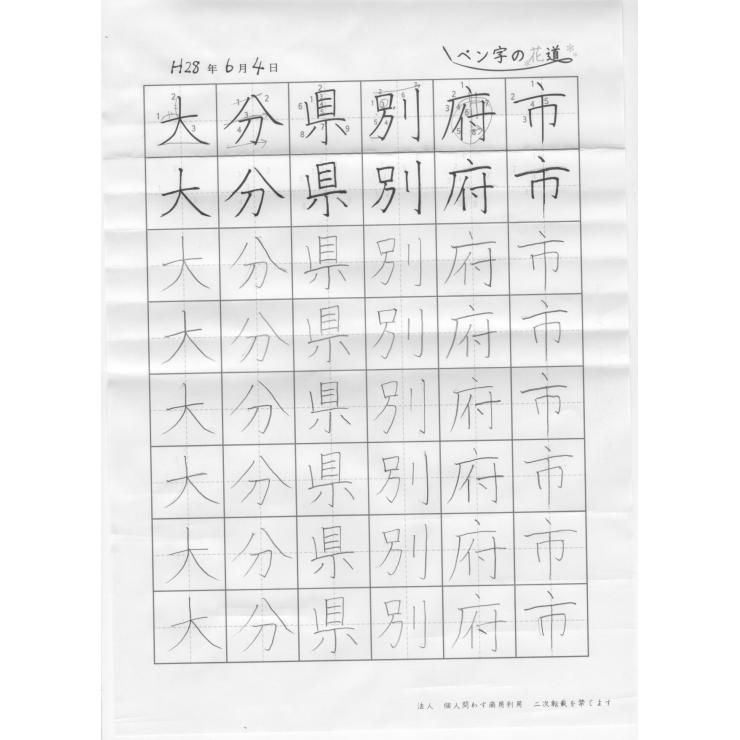 ペン字の花道
H28年6月4日
大分県別府市
大分県別府市
大分県別府市
大分県別府市
大分県別府市
大分県別府市
大分県別府市
大分県別府市
法人 個人問わず商用利用 二次転載を禁じます